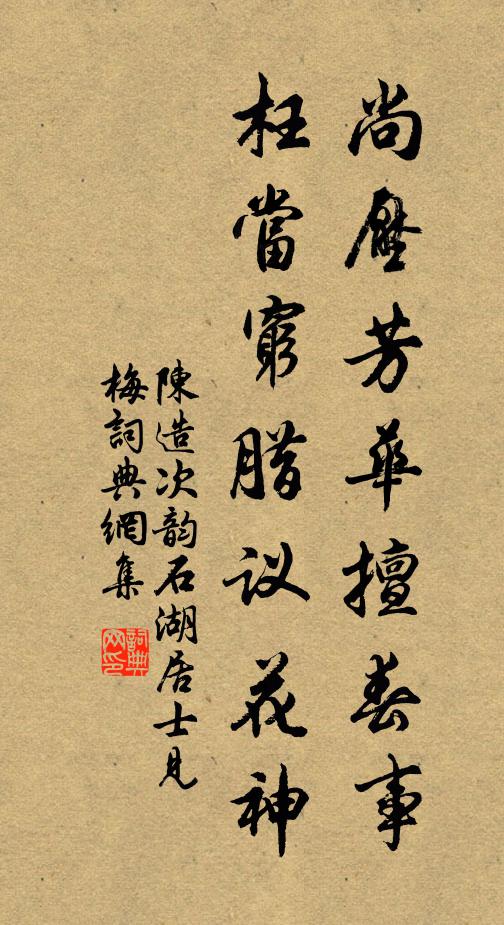 尚壓芳華擅春事
枉當窮腊议花神
陳造次韵石湖居士見
梅詞典網集
詞典
网印